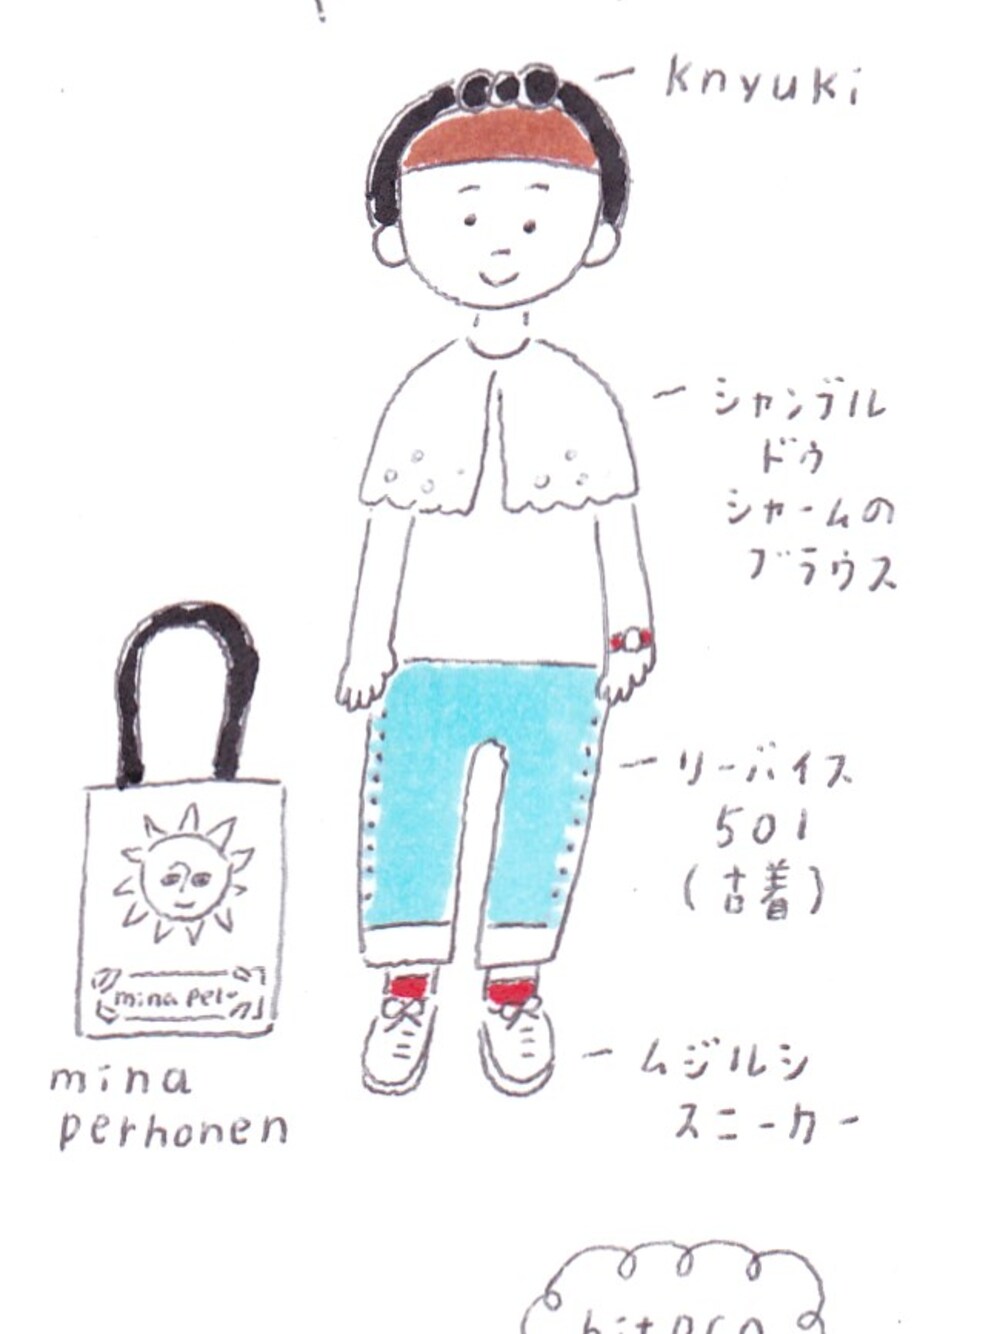 Knyuki
シャンブル
ドゥ
シャームの
ブラウス
リーバイス
501
(古着)
mina per-
mina
perhonen
ムジルシ
スニーカー